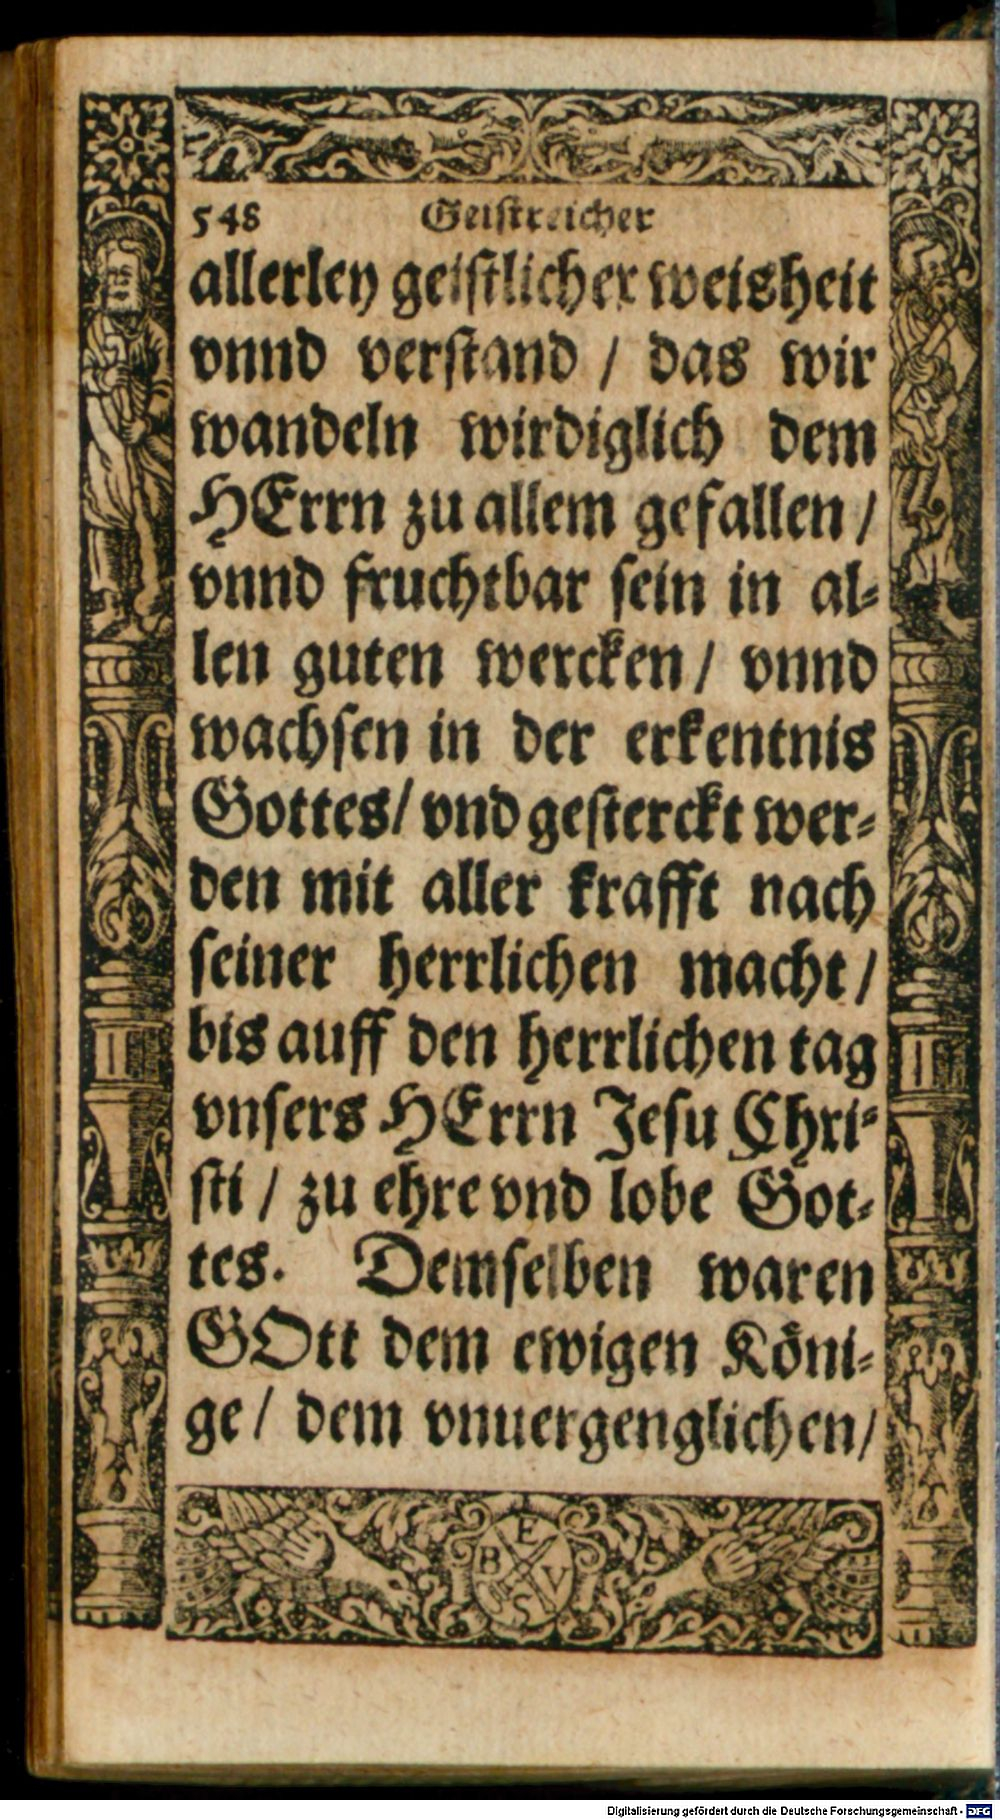 548 Geistreicher
allerley geistlicher weisheit
vnnd verstand / das wir
wandeln wirdiglich dem
HErrn zu allem gefallen /
vnnd fruchtbar sein in al-
len guten wercken / vnnd
wachsen in der erkentnis
Gottes / vnd gesterckt wer-
den mit aller krafft nach
seiner herrlichen macht /
bis auff den herrlichen tag
vnsers HErrn Jesu Chri-
sti / zu ehre vnd lobe Got-
tes. Demselben waren
GOtt dem ewigen Köni-
ge / dem vnuergenglichen /
E
B V
S
Digitalisierung gefördert durch die Deutsche Forschungsgemeinschaft - DFG